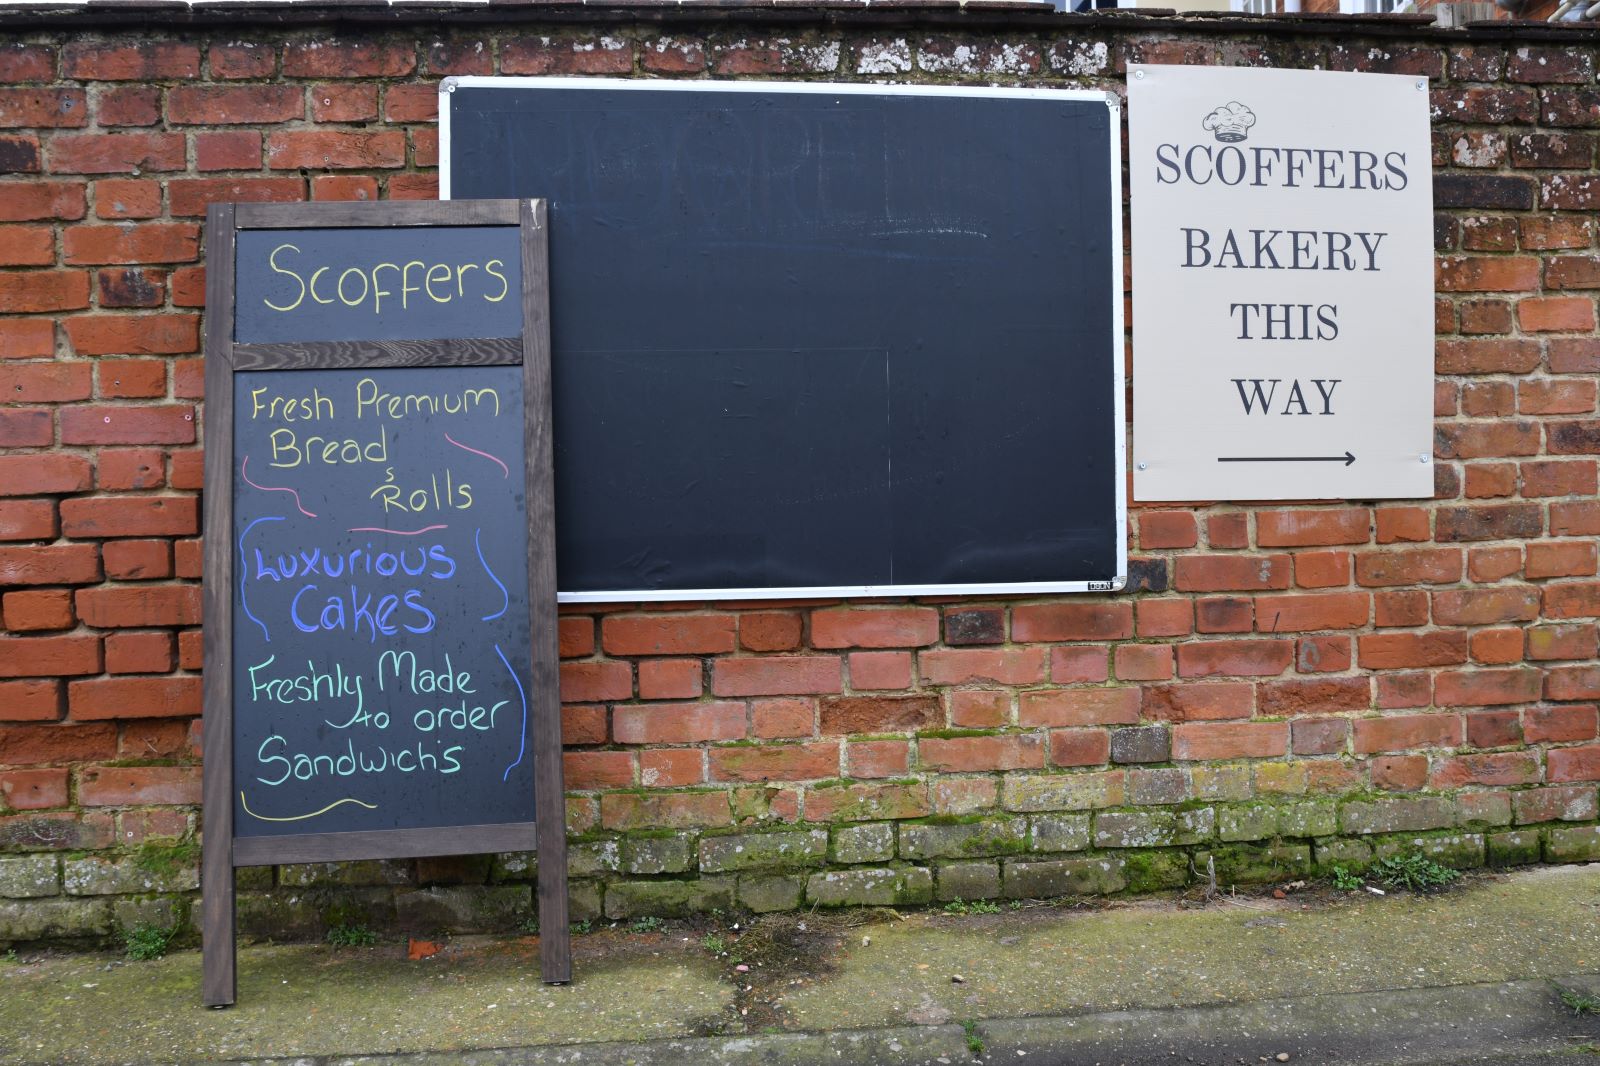 Scoffers
Fresh Premium
Bread
&
Rolls
Luxurious
Cakes
Freshly Made
to order
Sandwich's
SCOFFERS
BAKERY
THIS
WAY